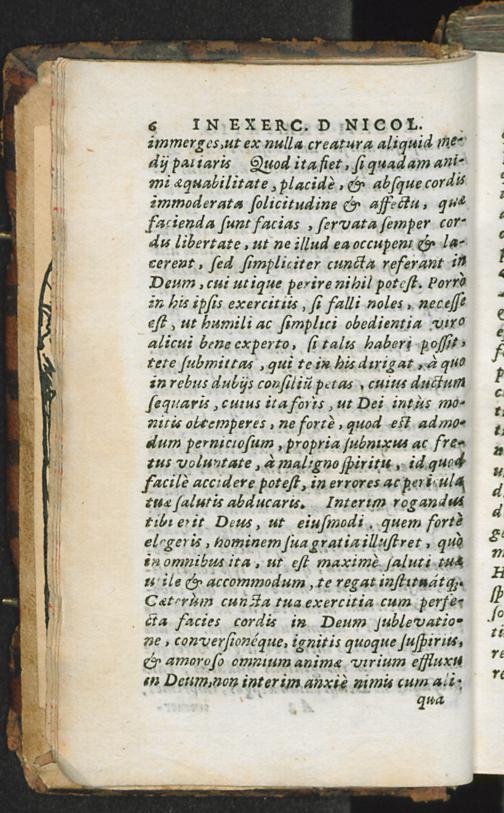 6 IN EXERC. D NICOL.
immerges, ut ex nulla creatura aliquid me-
dij patiaris Quod ita fiet, si quadam ani-
mi æquabilitate, placidè, & absque cordis
immoderata solicitudine & affectu, quæ
facienda sunt facias, servata semper cor-
dis libertate, ut ne illud ea occupent & la-
cerent, sed simpliciter cuncta referant in
Deum, cui utique perire nihil potest. Porrò
in his ipsis exercitiis, si falli noles, necesse
est, ut humili ac simplici obedientia viro
alicui bene experto, si talis haberi possit,
tete submittas, qui te in his dirigat, à quo
in rebus dubijs consiliū petas, cuius ductum
sequaris, cuius ita foris, ut Dei intùs mo-
nitis obtemperes, ne fortè, quod est admo-
dum perniciosum, propria subnixus ac fre-
tus voluntate, à maligno spiritu, id quod
facilè accidere potest, in errores ac pericula
tuæ salutis abducaris. Interim rogandus
tibi erit Deus, ut eiusmodi, quem fortè
elegeris, hominem sua gratia illustret, quò
in omnibus ita, ut est maximè saluti tuæ
utile & accommodum, te regat instituátq;.
Cæterùm cuncta tua exercitia cum perfe-
cta facies cordis in Deum sublevatio-
ne, conversionéque, ignitis quoque suspiriis,
& amoroso omnium animæ virium effluxu
in Deum, non interim anxiè nimis cum ali-
qua